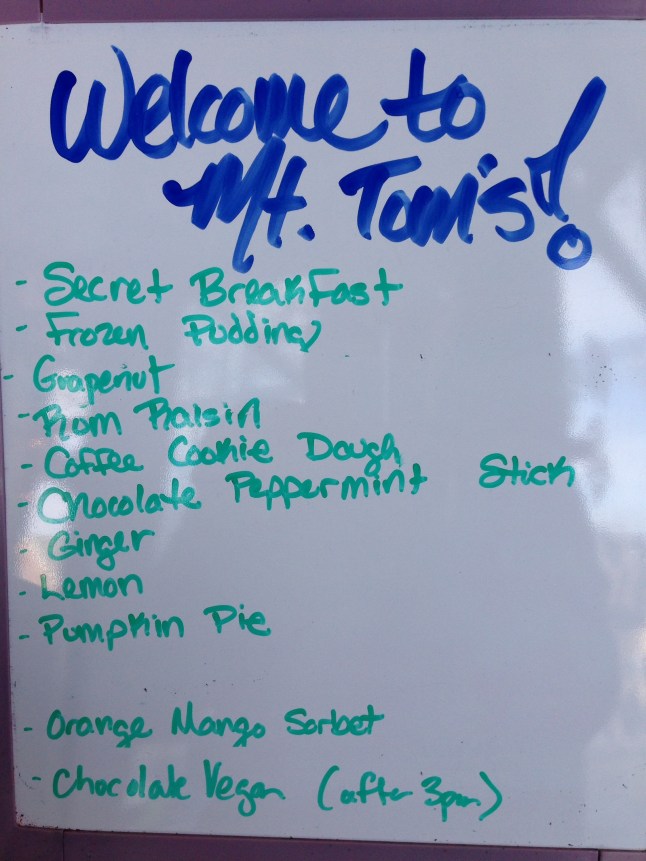 Welcome to
Mt. Tom's!
- Secret Breakfast
- Frozen Pudding
- Grapenut
- Rom Raisin
- Coffee Cookie Dough
- Chocolate Peppermint Stick
- Ginger
- Lemon
- Pumpkin Pie
- Orange Mango Sorbet
- Chocolate Vegan (after 3pm)